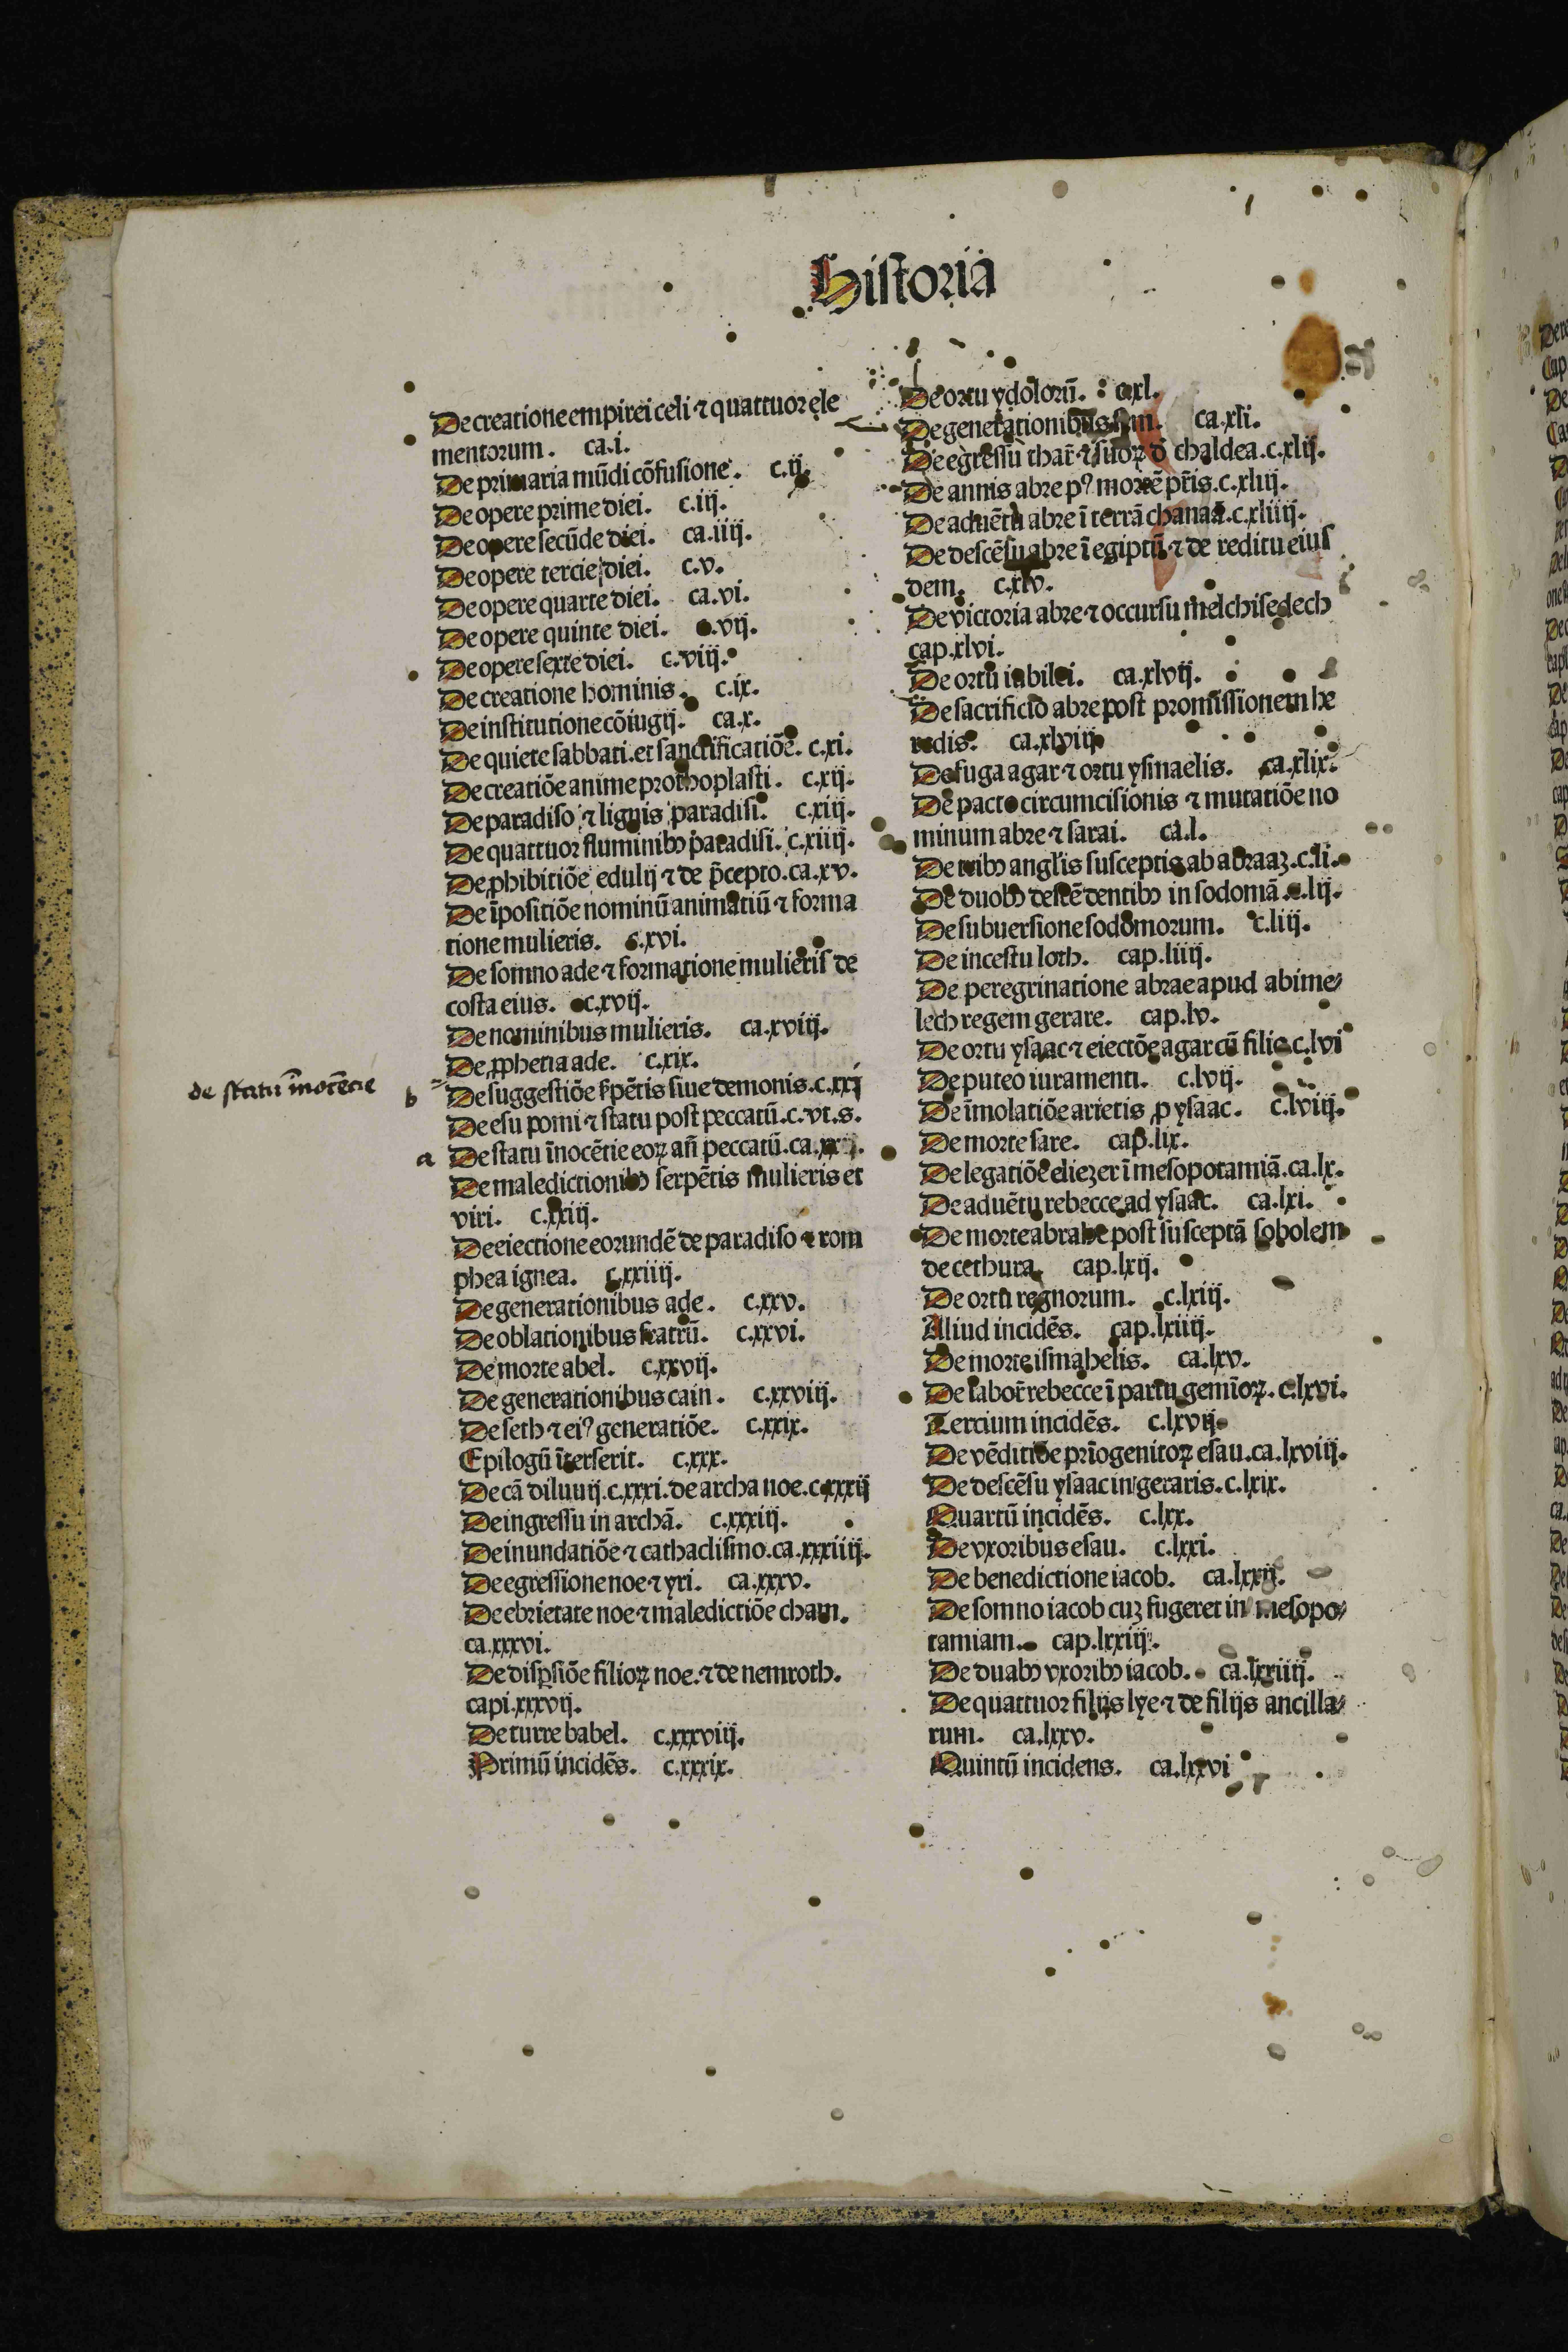 Historia
De creatione empirei celi ⁊ quattuor ele
mentorum. ca.i.
De primaria mūdi cōfusione. c.ij.
De opere prime diei. c.iij.
De opere secūde diei. ca.iiij.
De opere tercie diei. c.v.
De opere quarte diei. ca.vi.
De opere quinte diei. c.vij.
De opere sexte diei. c.viij.
De creatione hominis. c.ix.
De institutione cōiugij. ca.x.
De quiete sabbati. et sanctificatiōe. c.xi.
De creatiōe anime prothoplasti. c.xij.
De paradiso ⁊ lignis paradisi. c.xiij.
De quattuor fluminibꝰ paradisi. c.xiiij.
De ꝓhibitiōe edulij ⁊ de p̄cepto. ca.xv.
De īpositiōe nominū animatiū ⁊ forma
tione mulieris. c.xvi.
De somno ade ⁊ formatione mulieris de
costa eius. c.xvij.
De nominibus mulieris. ca.xviij.
De ꝓphetia ade. c.xix.
de statu īnocētie
b De suggestiōe s̓pētis siue demonis. c.xxj
De esu pomi ⁊ statu post peccatū. c.vt.s.
a De statu īnocētie eoꝝ an̄ peccatū. ca.
De maledictionibꝰ serpētis mulieris et
viri. c.xxiij.
De eiectione eorundē de paradiso ⁊ rom
phea ignea. c.xxiiij.
De generationibus ade. c.xxv.
De oblationibus fratrū. c.xxvi.
De morte abel. c.xxvij.
De generationibus cain. c.xxviij.
De seth ⁊ eiꝰ generatiōe. c.xxix.
Epilogū īterserit. c.xxx.
De cā diluuij. c.xxxi. de archa noe. c.xxxij
De ingressu in archā. c.xxxiij.
De inundatiōe ⁊ cathaclismo. ca.xxxiiij.
De egressione noe ⁊ yri. ca.xxxv.
De ebrietate noe ⁊ maledictiōe cham.
ca.xxxvi.
De disꝑsiōe filioꝝ noe. ⁊ de nemroth.
capi.xxxvij.
De turre babel. c.xxxviij.
Primū incidēs. c.xxxix.
De ortu ydolorū. c.xl.
De generationibus sem. ca.xli.
De egressu thar̄ ⁊ suoꝝ d̄ chaldea. c.xlij.
De annis abre pꝰ mortē p̄ris. c.xliij.
De aduētu abre ī terrā chanaā. c.xliiij.
De descēsu abre ī egiptū ⁊ de reditu eius
dem. c.xlv.
De victoria abre ⁊ occursu melchisedech
cap.xlvi.
De ortu iubilei. ca.xlvij.
De sacrificio abre post promissionem he
redis. ca.xlviij
De fuga agar ⁊ ortu ysmaelis. ca.xlix.
De pacto circumcisionis ⁊ mutatiōe no
minum abre ⁊ sarai. ca.l.
De tribꝰ angl̓is susceptis ab abraaꝫ. c.li.
De duobꝰ descēdentibꝰ in sodomā. c.lij.
De subuersione sodomorum. c.liij.
De incestu loth. cap.liiij.
De peregrinatione abrae apud abime⸗
lech regem gerare. cap.lv.
De ortu ysaac ⁊ eiectōe agar cū filio c.lvi
De puteo iuramenti. c.lvij.
De īmolatiōe arietis ꝓ ysaac. c.lviij.
De morte sare. cap.lix.
De legatiōe eliezer ī mesopotamiā. ca.lx.
De aduētu rebecce ad ysaac. ca.lxi.
De morte abrahe post susceptā sobolem
de cethura. cap.lxij.
De ortu regnorum. c.lxiij.
Aliud incidēs. cap.lxiiij.
De morte ismahelis. ca.lxv.
De labor̄ rebecce ī partu gemīoꝝ. c.lxvi.
Tercium incidēs. c.lxvij.
De vēditiōe prīogenitoꝝ esau. ca.lxviij.
De descēsu ysaac in geraris. c.lxix.
Quartū incidēs. c.lxx.
De vxoribus esau. c.lxxi.
De benedictione iacob. ca.lxxij.
De somno iacob cuꝫ fugeret in mesopo⸗
tamiam. cap.lxxiij.
De duabꝰ vxoribꝰ iacob. ca.lxxiiij.
De quattuor filijs lye ⁊ de filijs ancilla⸗
rum. ca.lxxv.
Quintū incidens. ca.lxxvi